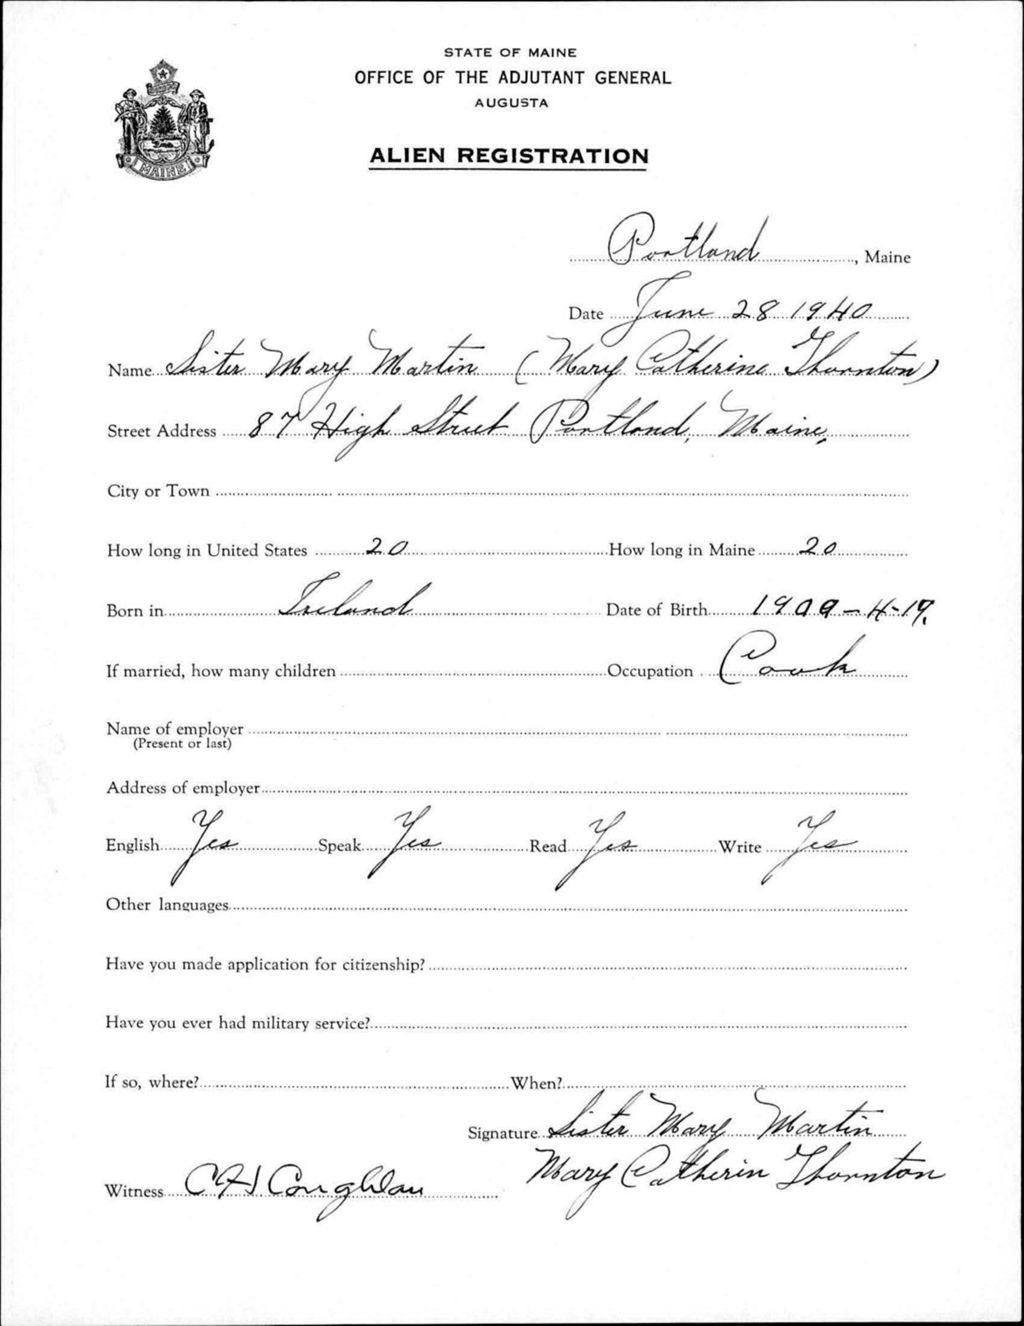 STATE OF MAINE
OFFICE OF THE ADJUTANT GENERAL
AUGUSTA
MAINE
ALIEN REGISTRATION
Portland, Maine
Date June 28 1940
Name Sister Mary Martin (Mary Catherine Thornton)
Street Address 87 High Street Portland, Maine,
City or Town
How long in United States 20 How long in Maine 20
Born in Ireland Date of Birth 1909-4-19.
If married, how many children Occupation Cook
Name of employer
(Present or last)
Address of employer
English Yes Speak Yes Read Yes Write Yes
Other languages
Have you made application for citizenship?
Have you ever had military service?
If so, where? When?
Signature Sister Mary Martin
Mary Catherin Thornton
Witness CH Coughlan